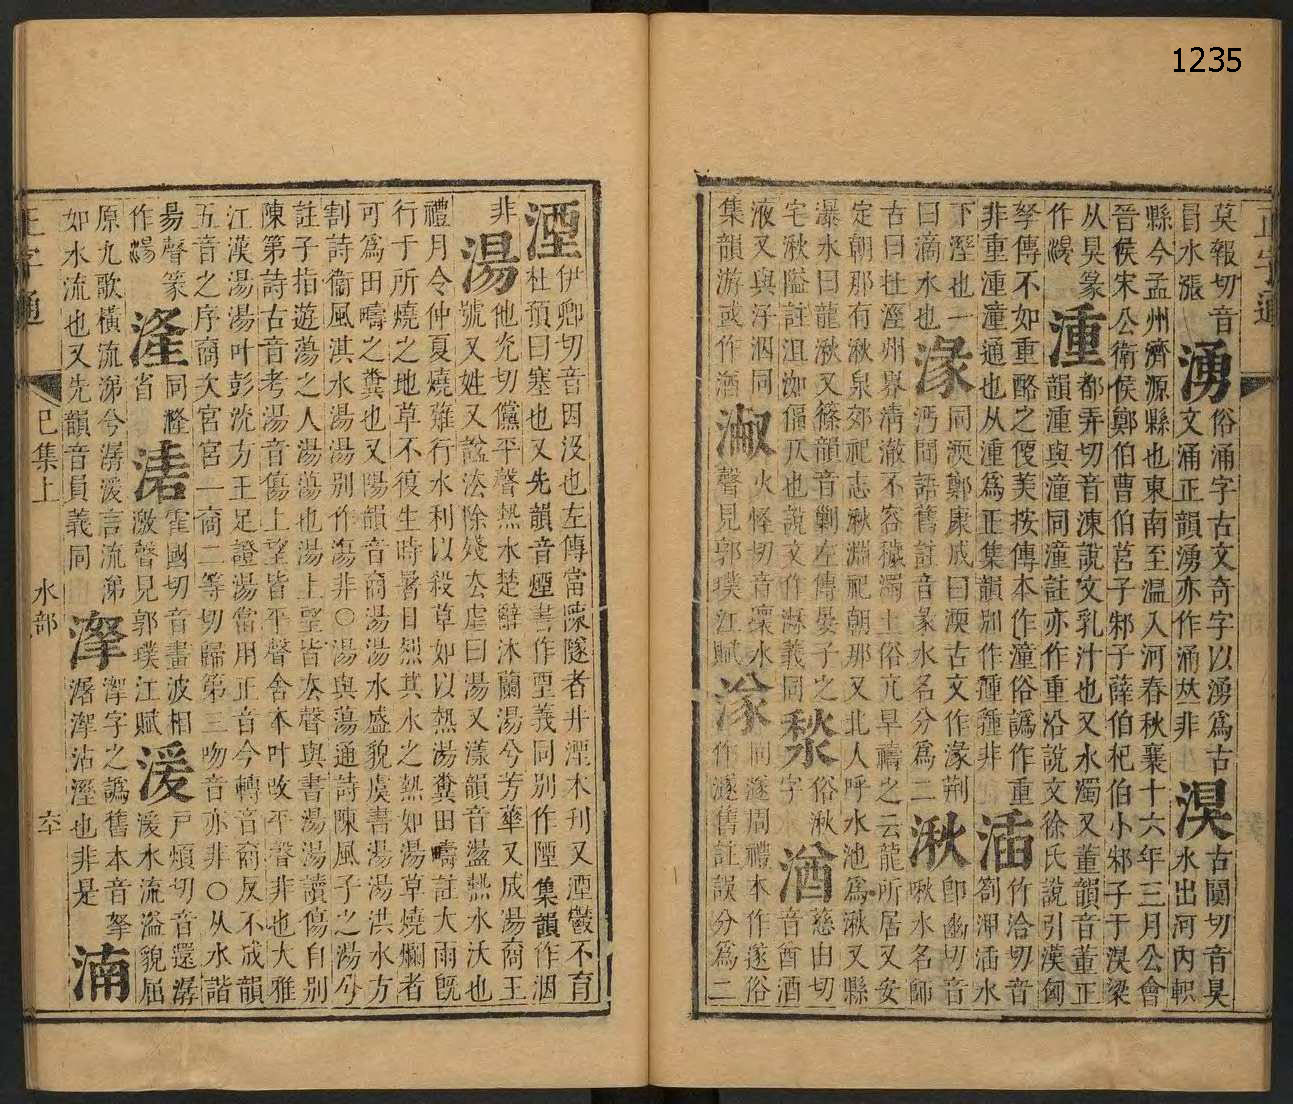 1235
正字通
莫報切音
冒水漲
湧
俗涌字古文奇字以湧爲古
文涌正韻湧亦作涌𠀤非
湨
古闃切音狊
水出河內軹
縣今孟州濟源縣也東南至温入河春秋襄十六年三月公會
晉侯宋公衛侯鄭伯曹伯莒子邾子薛伯杞伯小邾子于湨梁
从狊篆
作
湩
都弄切音凍說文乳汁也又水濁又董韻音董正
韻湩與潼同潼註亦作重沿說文徐氏說引漢匈
孥傳不如重酪之便美按傳本作潼俗譌作重
非重湩潼通也从湩爲正集韻別作
非
湁
竹洽切音
劄浬湁水
下溼也一
曰滴水也
湪
同渜鄭康成曰渜古文作湪荆
沔間語舊註音彖水名分爲二
湫
卽幽切音
啾水名師
古曰在涇州界淸澈不容穢濁土俗亢旱禱之云龍所居又安
定朝那有湫泉郊祀志湫淵祀朝那又北人呼水池爲湫又縣
瀑水曰龍湫又篠韻音剿左傳晏子之
宅湫隘註沮洳偪仄也說文作湫義同
湬
俗湫
字
湭
慈由切
音酋酒
液又與浮泅同
集韻游或作湭
㴙
火怪切音壞水
聲見郭璞江賦
㴚
同遂周禮本作遂俗
作遂舊註誤分爲二
湮
伊卿切音因没也左傳當陳隧者井湮木刋又湮鬱不育
杜預曰塞也又先韻音煙書作堙義同別作陻集韻作洇
非
湯
他㳘切儻平聲熱水楚辭沐蘭湯兮芳華又成湯商王
號又姓又諡法除殘去虐曰湯又漾韻音盪熱水沃也
禮月令仲夏燒薙行水利以殺草如以熱湯糞田疇註大雨旣
行于所燒之地草不復生時暑日烈其水之熱如湯草燒爛者
可爲田疇之糞也又陽韻音商湯湯水盛貌虞書湯湯洪水方
割詩衞風淇水湯湯別作蕩非○湯與蕩通詩陳風子之湯兮
註子指遊蕩之人湯蕩也湯上望皆去聲與書湯湯讀傷自別
陳第詩古音考湯音傷上望皆平聲舍本叶改平聲非也大雅
江漢湯湯叶彭洸方王足證湯當用正音今轉音商反不成韻
五音之序商次宮宮一商二等切歸第三吻音亦非○从水諧
昜聲篆
作湯
湰
同瀧
省
湱
霍國切音畫波相
激聲見郭璞江賦
湲
于煩切音還潺
湲水流溢貌屈
原九歌橫流涕兮潺湲言流涕
如水流也又先韻音員義同
㴜
澤字之譌舊本音拏
㴜沾溼也非是
湳
正字通
巳集上
水部
六